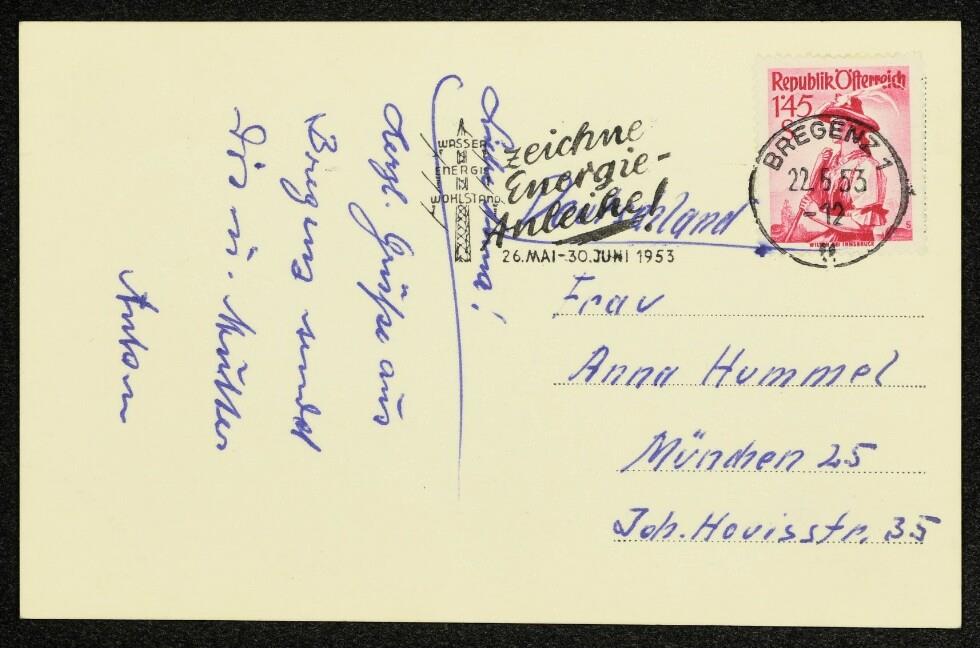 Liebe Anna!
Herzl. Grüße aus
Bregenz sendet
Dir u. Mutter
Anton
WASSER
ENERGIE
WOHLSTAND
zeichne
Energie-
Anleihe!
26.MAI-30.JUNI 1953
Republik Österreich
1'45
S
WILTEN BEI INNSBRUCK
BREGENZ 1
22.6.53
-12
Deutschland
Frau
Anna Hummel
München 25
Joh. Houisstr. 35